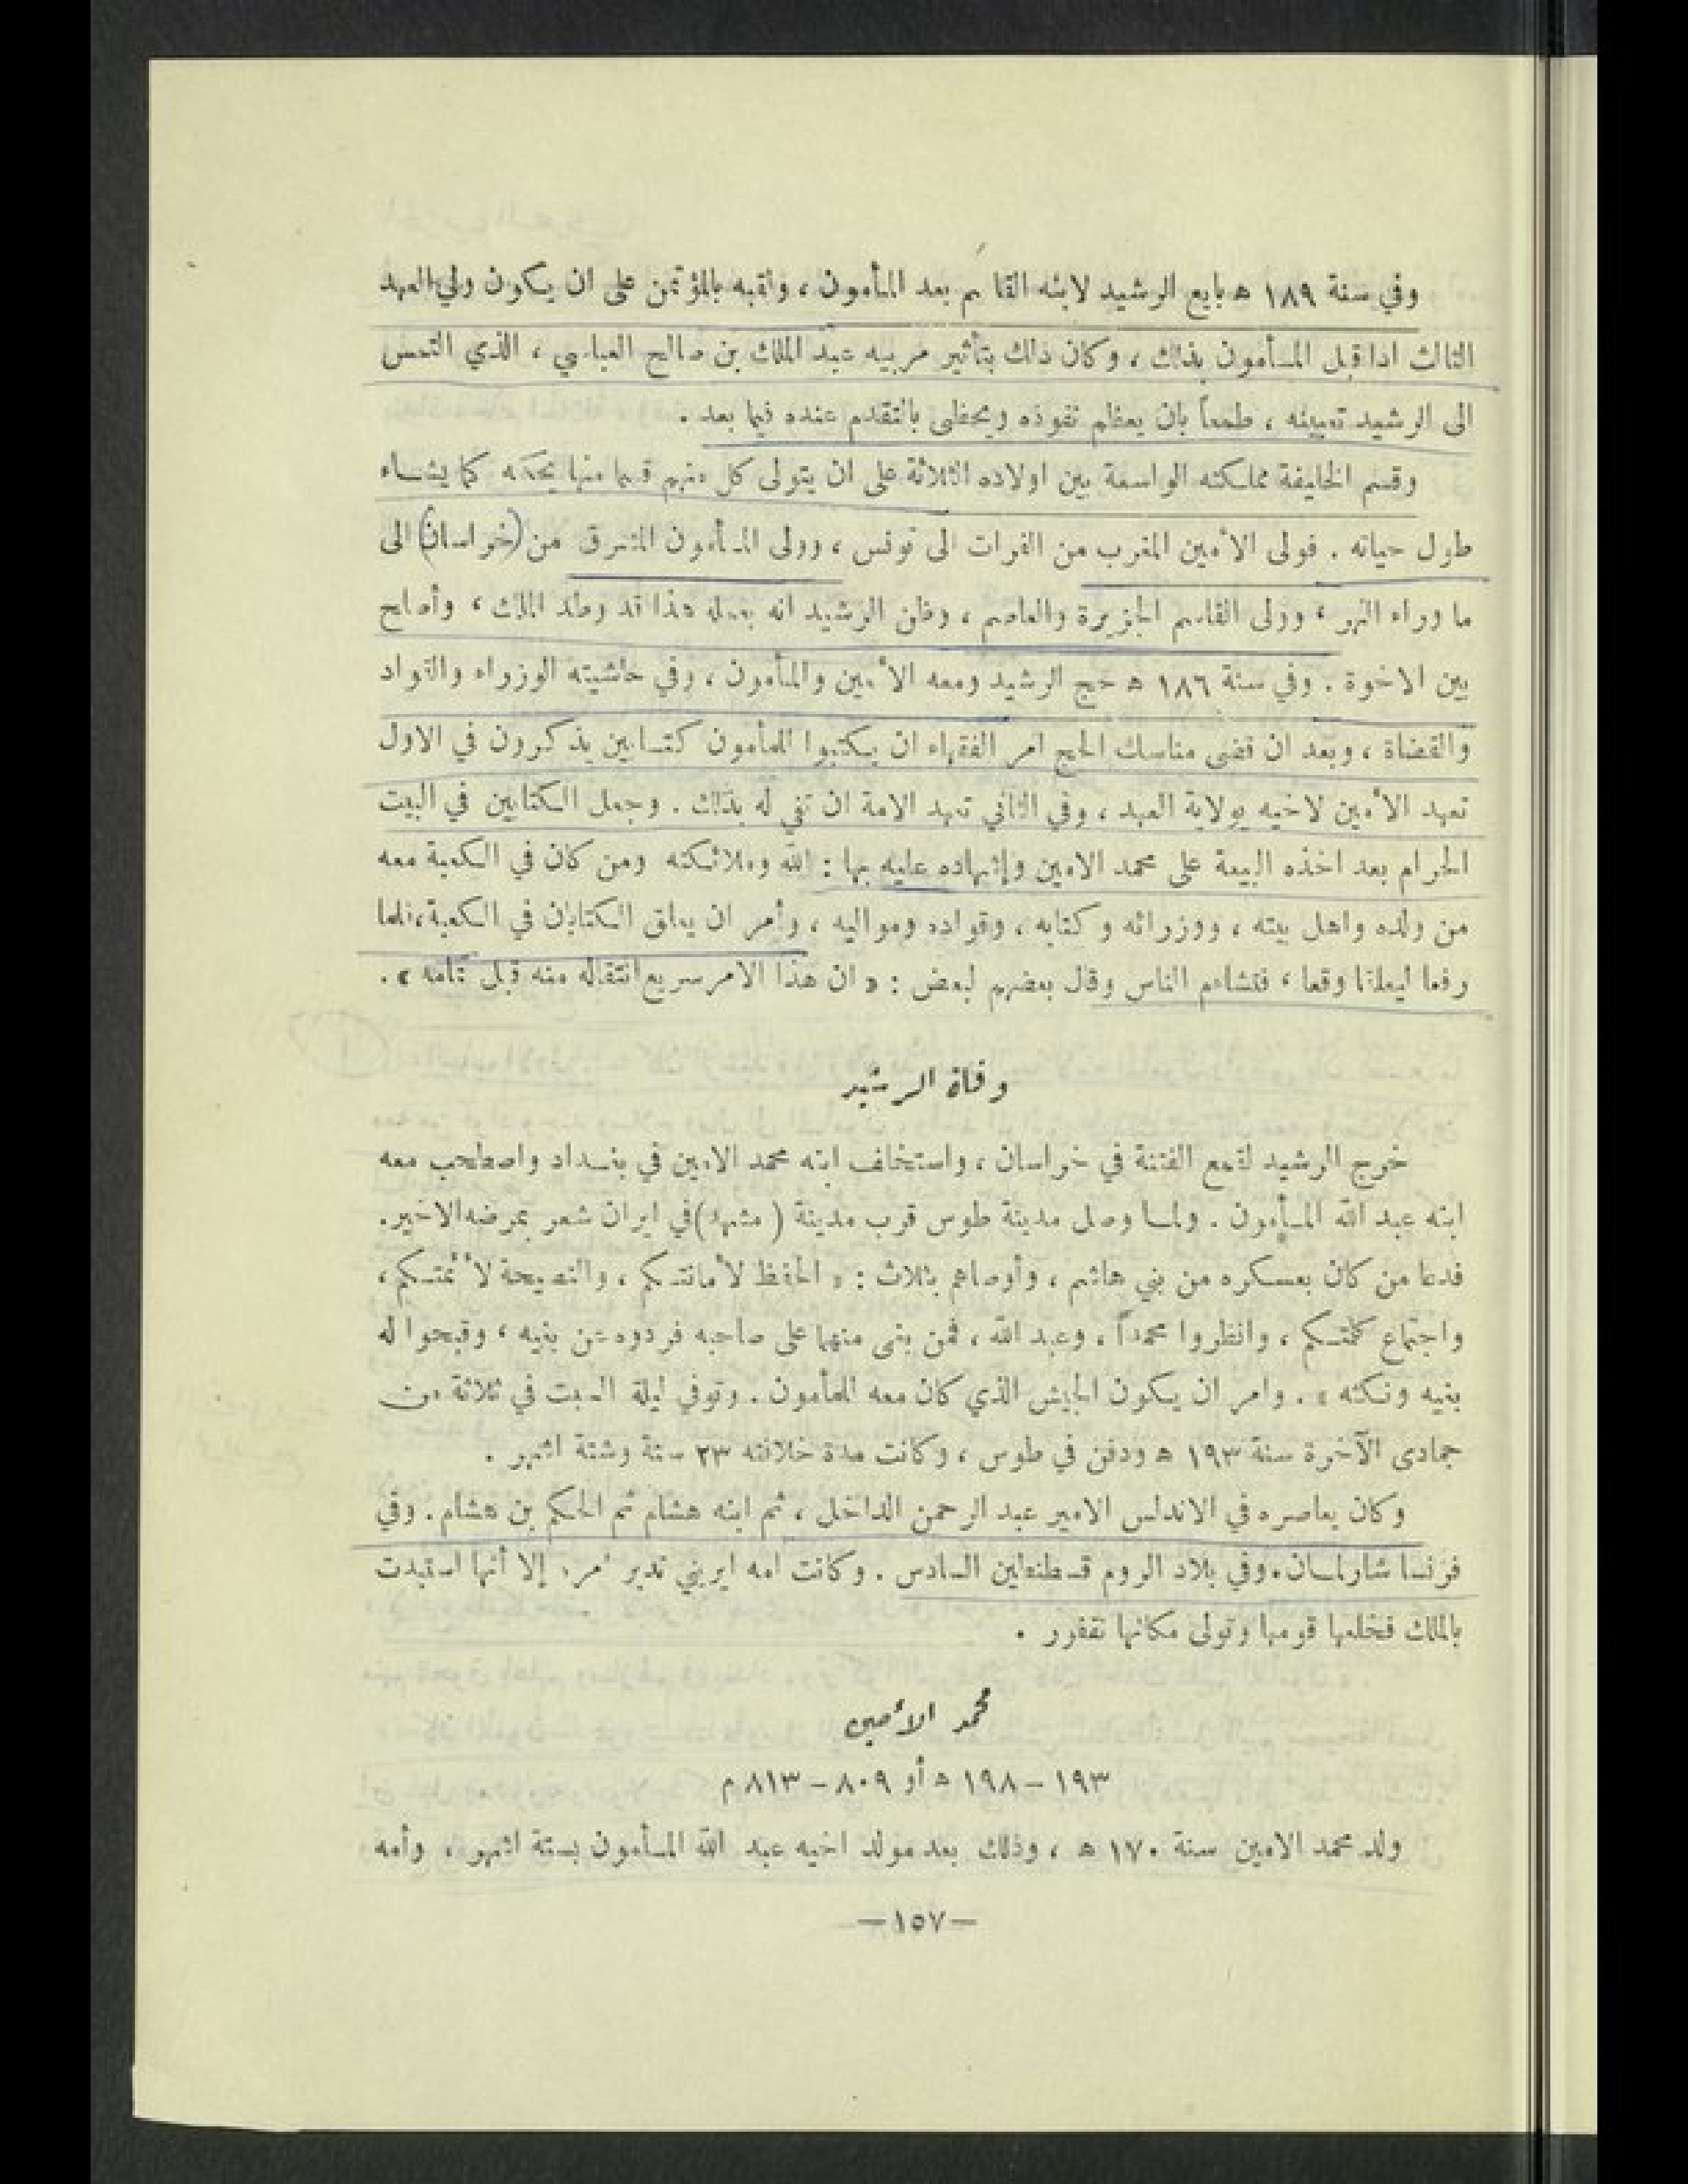 وفي سنة ١٨٩ ه بايع الرشيد لابنه القاسم بعد المأمون ، ولقبه بالمؤتمن على ان يكون ولي العهد
الثالث اذا قبل المأمون بذلك ، وكان ذلك بتأثير مربيه عبد الملك بن صالح العباسي ، الذي التمس
الى الرشيد تعيينه ، طمعاً بان يعظم نفوذه ويحظى بالتقدم عنده فيما بعد .
وقسم الخليفة مملكته الواسعة بين اولاده الثلاثة على ان يتولى كل منهم قسما منها يحكمه كما يشاء
طول حياته . فولى الأمين المغرب من الفرات الى تونس ، وولى المأمون المشرق من (خراسان) الى
ما وراء النهر ، وولى القاسم الجزيرة والعاصم ، وظن الرشيد انه بعمله هذا قد وطد الملك ، وأصلح
بين الاخوة . وفي سنة ١٨٦ ه حج الرشيد ومعه الأمين والمأمون ، وفي حاشيته الوزراء والقواد
والقضاة ، وبعد ان قضى مناسك الحج امر الفقهاء ان يكتبوا للمأمون كتابين يذكرون في الاول
تعهد الأمين لاخيه بولاية العهد ، وفي الثاني تعهد الامة ان تفي له بذلك . وجعل الكتابين في البيت
الحرام بعد اخذه البيعة على محمد الامين وإشهاده عليه بها : الله وملائكته ومن كان في الكعبة معه
من ولده واهل بيته ، ووزرائه وكتابه ، وقواده ومواليه ، وأمر ان يعلق الكتابان في الكعبة ، فلما
رفعا ليعلقا وقعا ، فتشاءم الناس وقال بعضهم لبعض : « ان هذا الامر سريع انتقاله منه قبل تمامه » .
وفاة الرشيد
خرج الرشيد لقمع الفتنة في خراسان ، واستخلف ابنه محمد الامين في بغداد واصطحب معه
ابنه عبد الله المأمون . ولما وصل مدينة طوس قرب مدينة ( مشهد ) في ايران شعر بمرضه الاخير.
فدعا من كان بعسكره من بني هاشم ، وأوصاهم بثلاث : « الحفظ لأمانتكم ، والنصيحة لأئمتكم ،
واجتماع كلمتكم ، وانظروا محمداً ، وعبد الله ، فمن بغى منهما على صاحبه فردوه عن بغيه ، وقبحوا له
بغيه ونكثه » . وامر ان يكون الجيش الذي كان معه للمأمون . وتوفي ليلة السبت في ثلاثة من
جمادى الآخرة سنة ١٩٣ ه ودفن في طوس ، وكانت مدة خلافته ٢٣ سنة وستة اشهر .
وكان يعاصره في الاندلس الامير عبد الرحمن الداخل ، ثم ابنه هشام ثم الحكم بن هشام . وفي
فرنسا شارلمان ، وفي بلاد الروم قسطنطين السادس . وكانت امه ايريني تدبر أمره إلا أنها استبدت
بالملك فخلعها قومها وتولى مكانها نقفور .
محمد الأمين
١٩٣ – ١٩٨ ه أو ٨٠٩ – ٨١٣ م
ولد محمد الامين سنة ١٧٠ ه ، وذلك بعد مولد اخيه عبد الله المأمون بستة اشهر ، وأمه
— ١٥٧ —